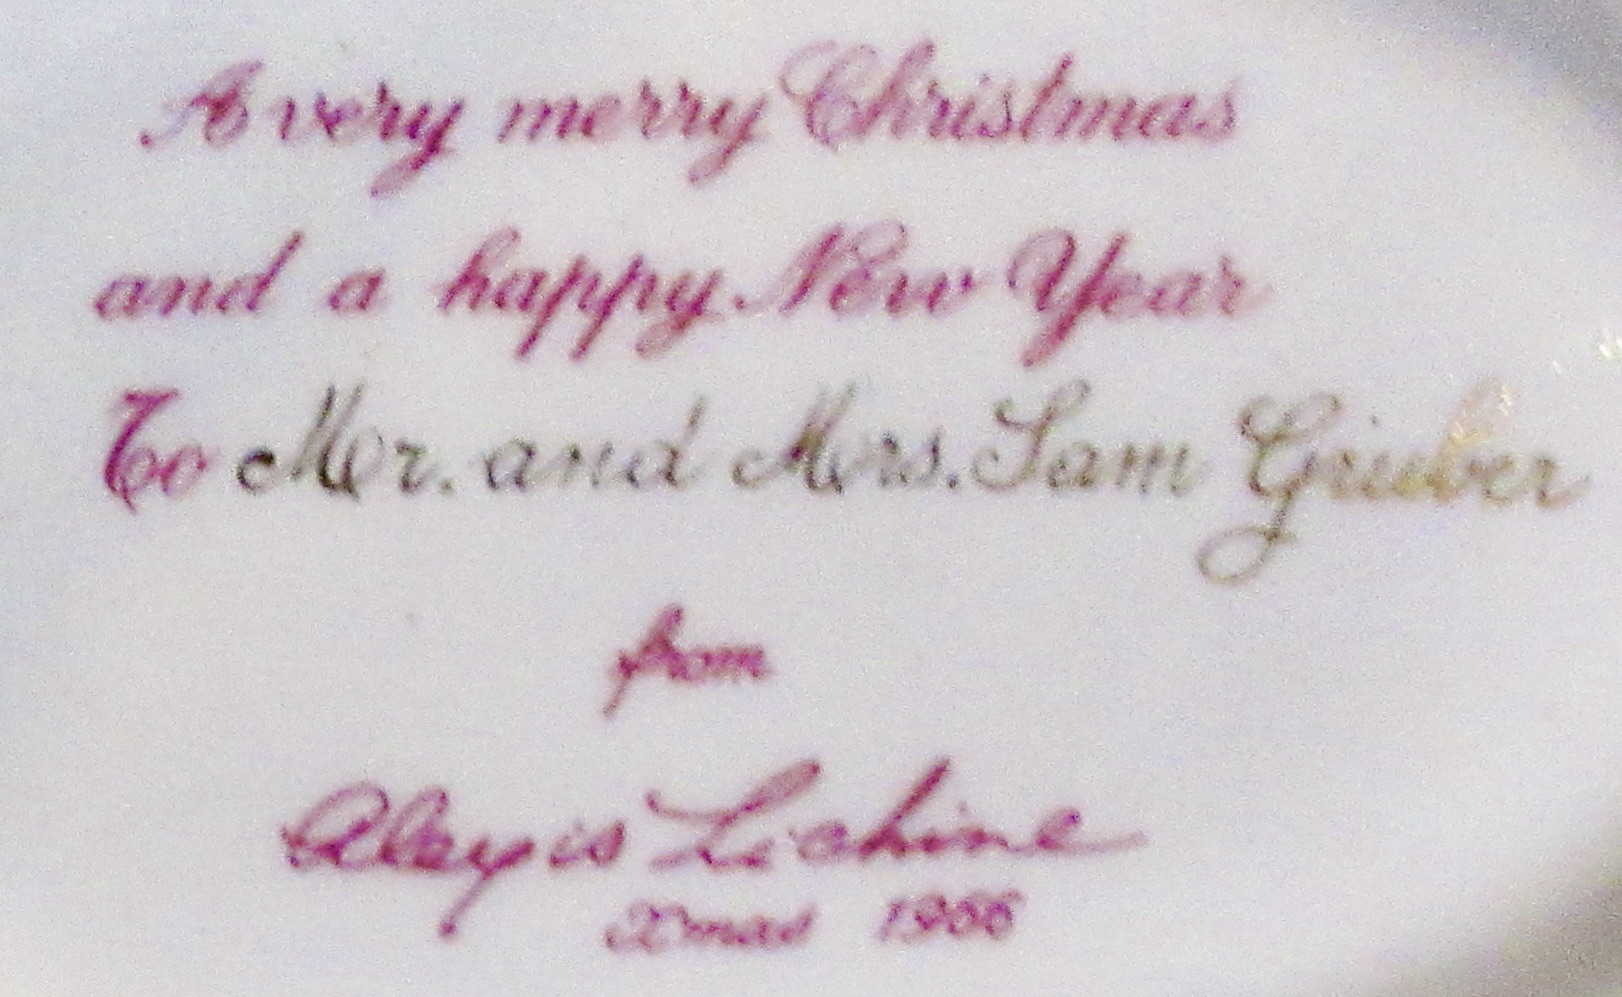 A very merry Christmas
and a happy New Year
To Mr. and Mrs. Sam Gruber
from
Alexis Lichine
Xmas